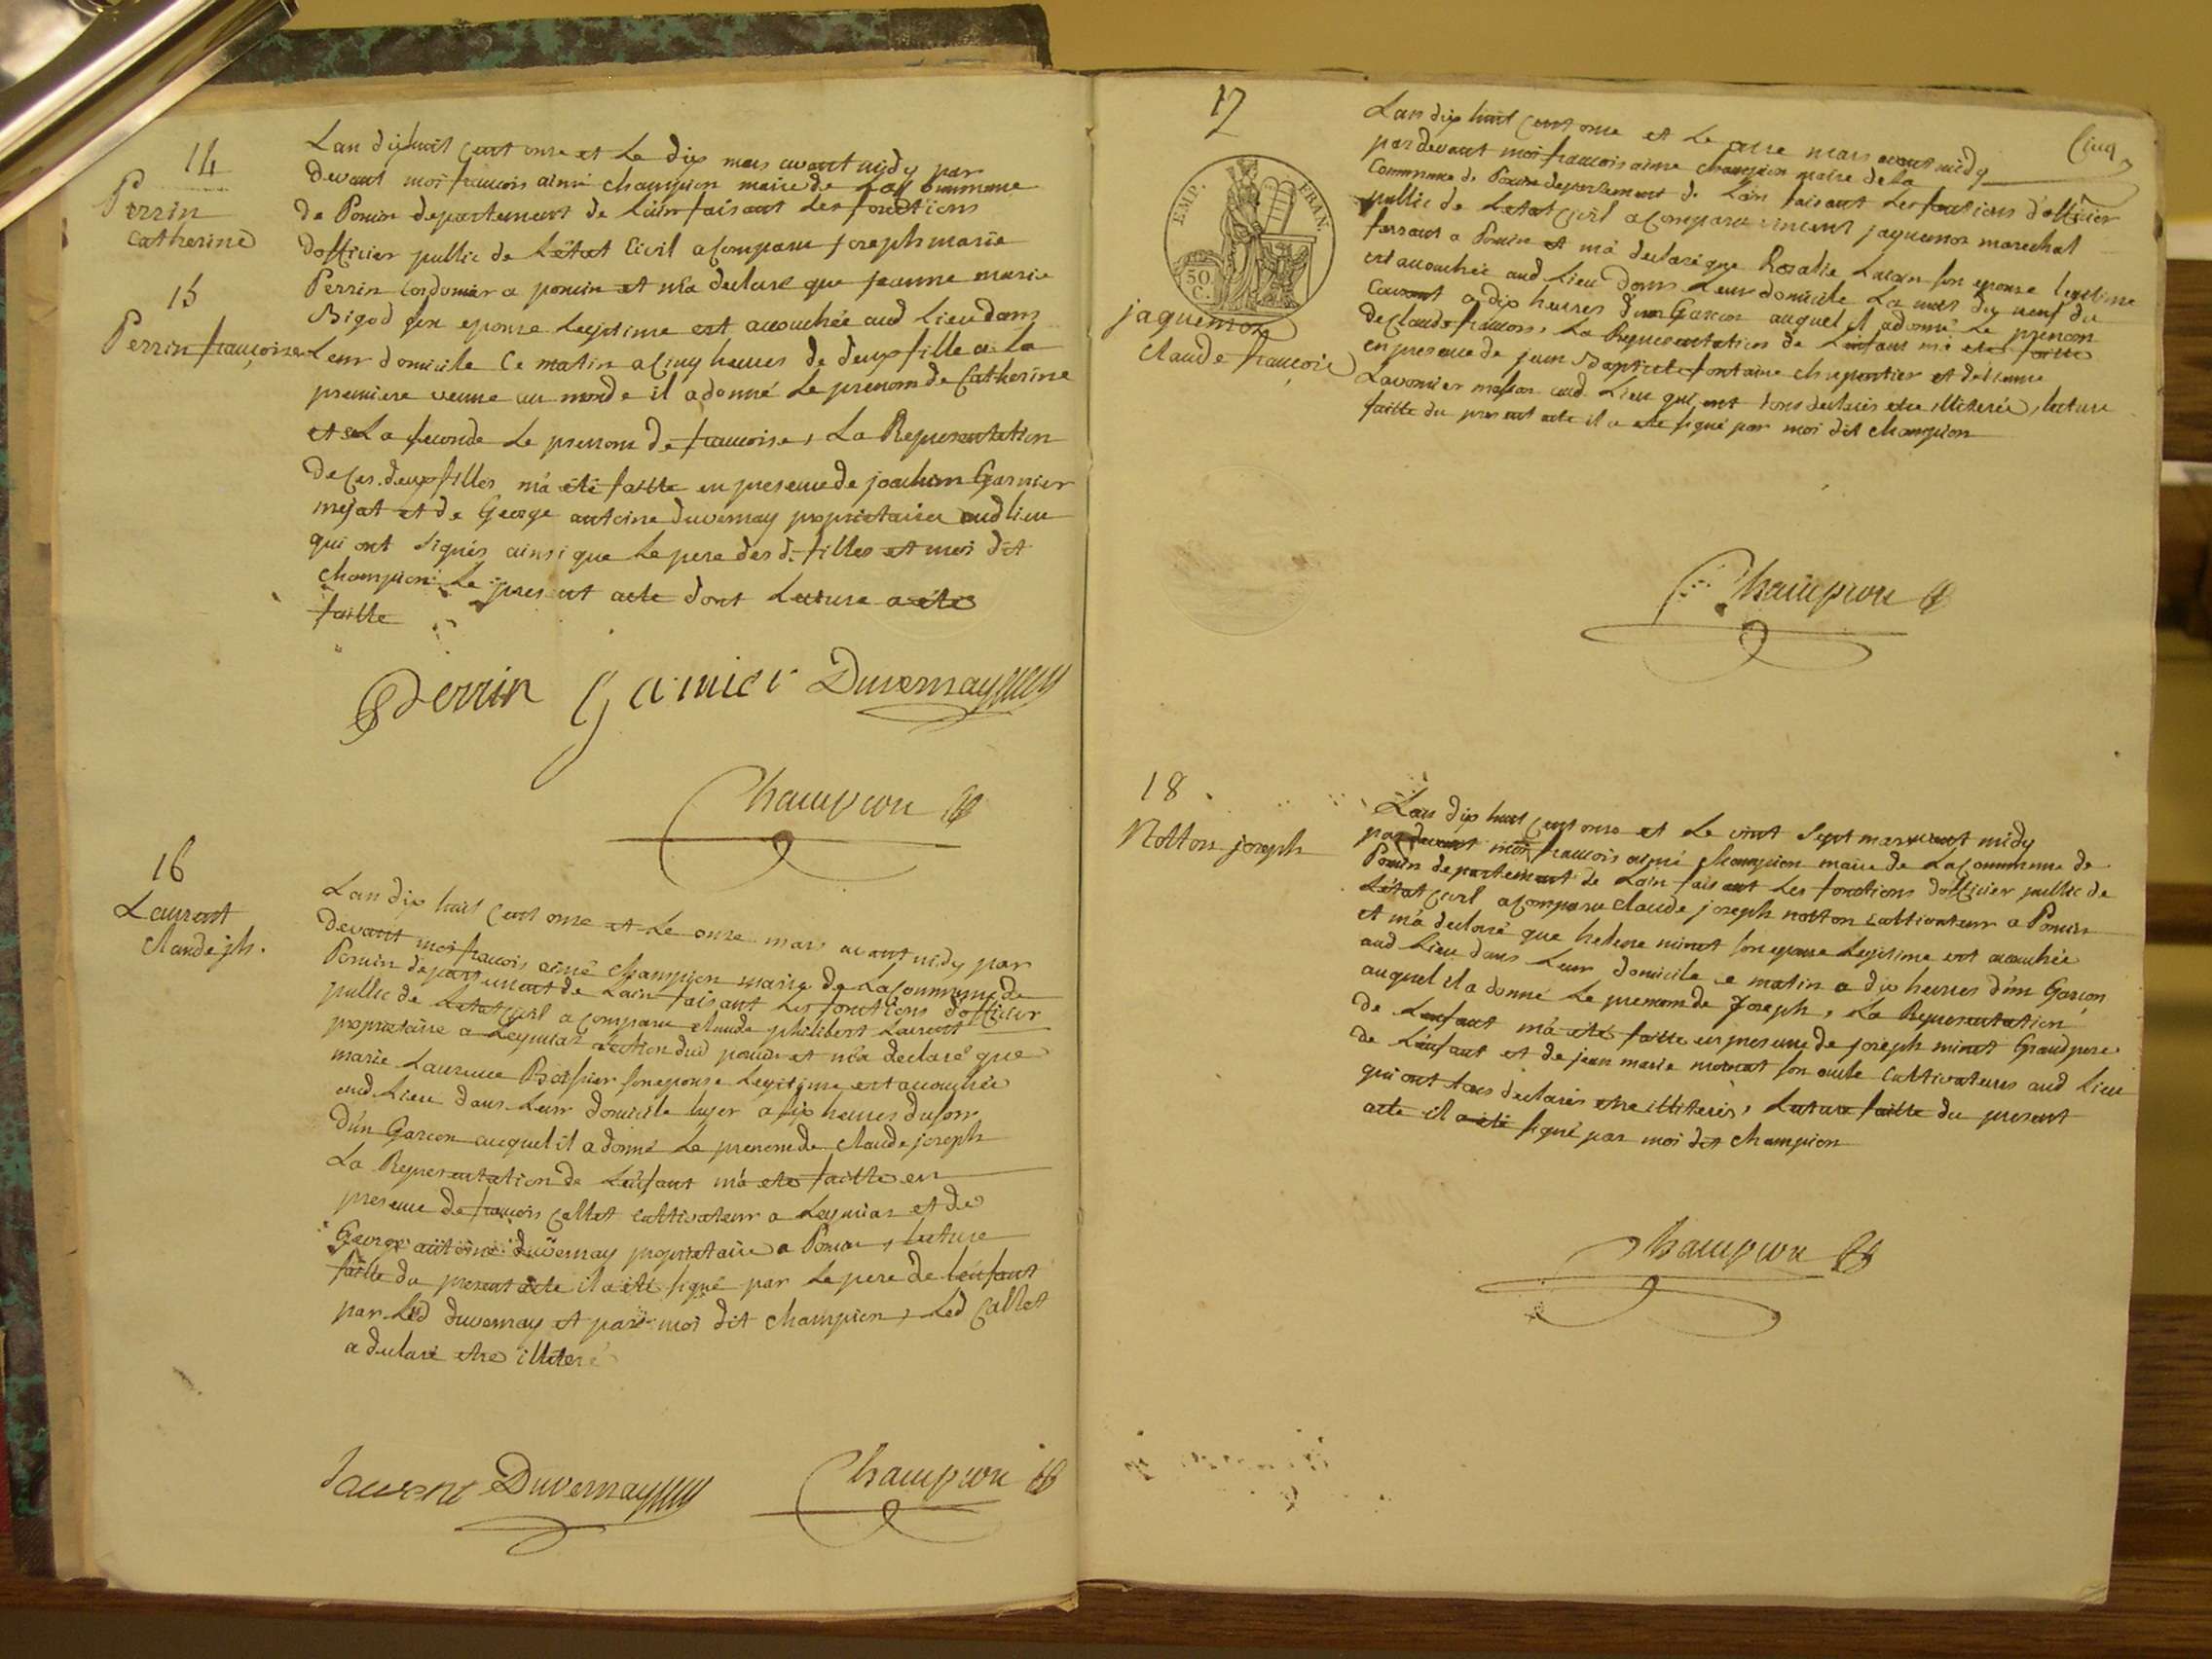 14
Perrin
Catherine
15
Perrin françoise
Lan dixhuit cent onze et Le dix mars avant midy par
devant moi francois aimé champion maire de La Commune
de Poncin departement de Lain faisant Les fonctions
dofficier public de Létat Civil a comparu joseph marie
Perrin Cordonier a poncin et m'a declaré que jeanne marie
Bigod son epouse Legitime est accouchée aud Lieu dans
Leur domicile Ce matin a Cinq heures de deux fille a La
premiere venue au monde il a donné Le prenom de Catherine
et a La seconde Le prenom de francoise, La Representation
de Ces deux filles m'a été faitte en presence de joachim Garnier
et de George antoine duvernay proprietaires aud lieu
qui ont signés ainsi que Le pere des d. filles et moi dit
champion Le present acte dont Lecture a été
faitte
Perrin Garnier Duvernay
Champion
16
Laurent
Claude jph.
Lan dix huit Cent onze et Le onze mars avant midy par
devant moi francois aimé champion maire de La Commune de
Poncin departement de Lain faisant Les fonctions dofficier
public de Letat Civil a comparu claude philibert Laurent
proprietaire a Leymiat section dud poncin et m'a declaré que
marie Laurence Boissier son epouse Legitime est accouchée
aud Lieu dans Leur domicile hyer a six heures du soir
d'un Garcon auquel il a donné Le prenom de claude joseph
La Representation de Lenfant m'a eté faitte en
presence de francois Callet cultivateur a Leymiat et de
George antoine duvernay proprietaire a Poncin, Lecture
faitte du present acte il a été signé par Le pere de lenfant
par Led duvernay et par moi dit champion, Led Callet
a declaré etre illiteré
Laurent Duvernay Champion
Cinq
17
EMP. FRAN.
50 C.
jaquemoz
Claude françois
Lan dix huit Cent onze et Le mars avant midy
pardevant moi francois aimé champion maire de La
Commune de Poncin departement de Lain faisant Les fonctions d'officier
public de Letat Civil a comparu vincent jaquemoz marechal
ferrant a Poncin et m'a declaré que Rosalie son epouse legitime
est accouchée aud Lieu dans Leur domicile La nuit du neuf du
Courant a dix heures d'un Garcon auquel il a donné Le prenom
de Claude francois, La Representation de Lenfant m'a eté faitte
en presence de jean Baptiste fontaine charpentier et detienne
Lavornier masson aud Lieu qui ont tous declarés etre illiterés, lecture
faitte du present acte il a eté signé par moi dit champion
Champion
18
Notton joseph
Lan dix huit Cent onze et Le vint sept mars avant midy
pardevant moi francois aimé champion maire de La Commune de
Poncin departement de Lain faisant Les fonctions dofficier public de
Létat Civil a comparu Claude joseph notton Cultivateur a Poncin
et m'a declaré que helene minot son epouse Legitime est accouchée
aud Lieu dans Leur domicile Ce matin a dix heures d'un Garçon
auquel il a donné Le prenom de Joseph, La Representation
de Lenfant m'a eté faitte en presence de joseph minot Grand pere
de Lenfant et de jean marie son oncle Cultivateurs aud Lieu
qui ont tous declarés etre illiterés, Lecture faitte du present
acte il a été signé par moi dit champion
Champion